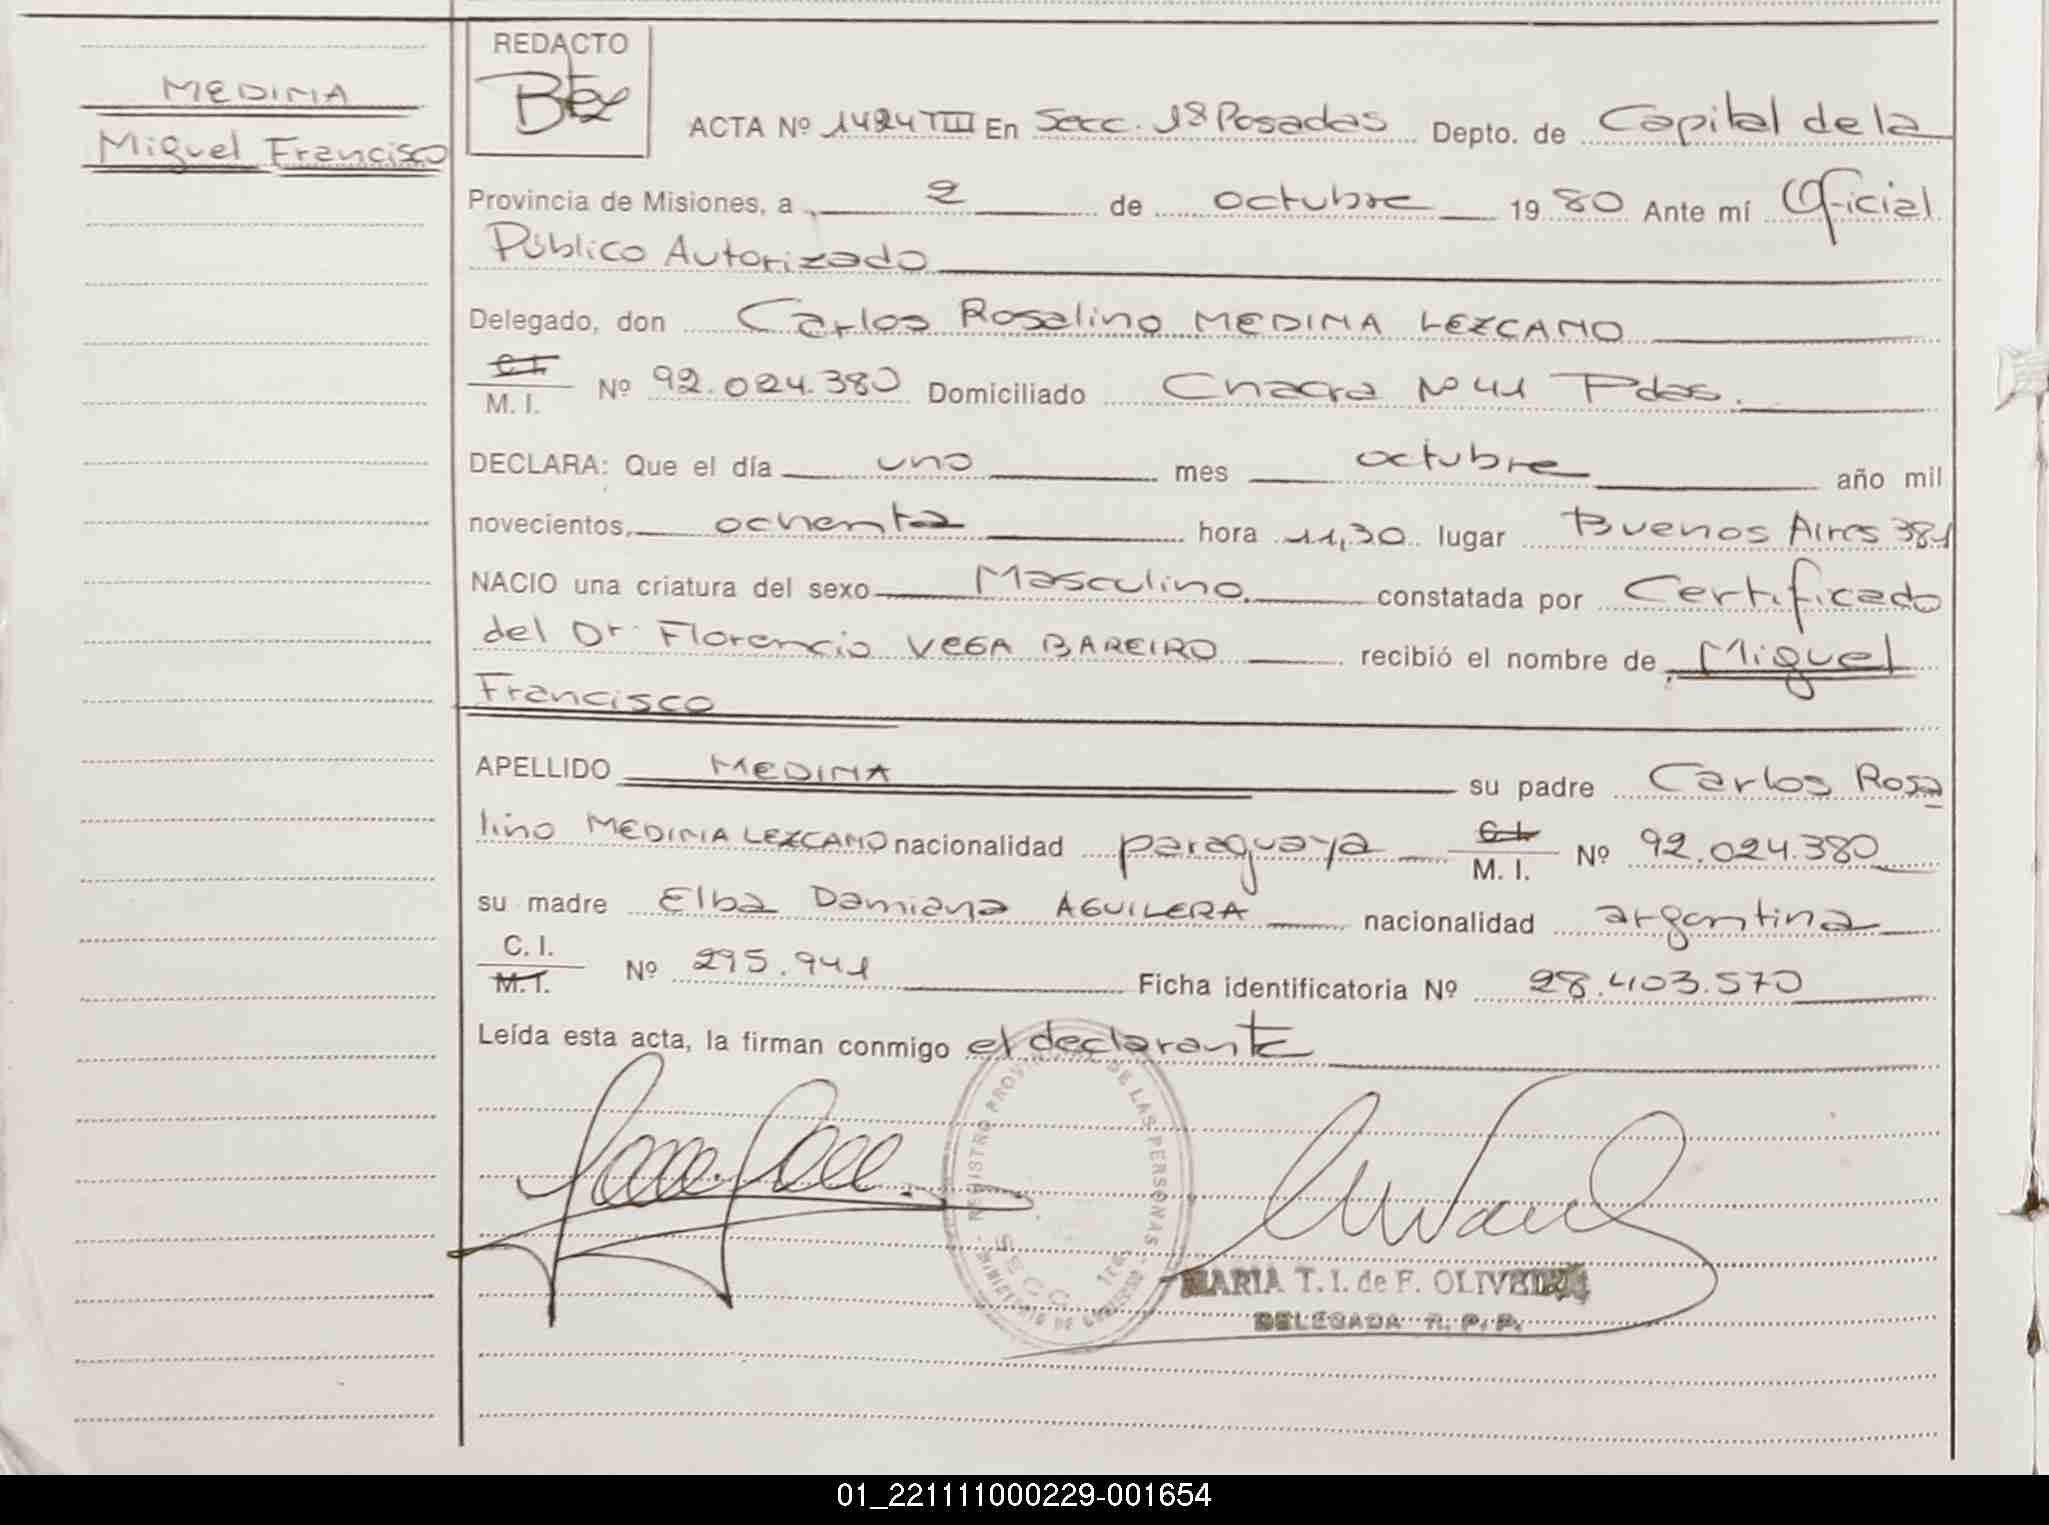 MEDINA
Miguel Francisco
REDACTO
ACTA Nº 1424 TIII En Secc. 1ª Posadas Depto. de Capital de la
Provincia de Misiones, a 2 de octubre 1980 Ante mí Oficial
Público Autorizado
Delegado, don Carlos Rosalino MEDINA LEZCANO
C.I. / M. I. Nº 92.024.380 Domiciliado Chacra Nº 41 Pdas.
DECLARA: Que el día uno mes octubre año mil
novecientos, ochenta hora 11,30 lugar Buenos Aires 381
NACIO una criatura del sexo Masculino. constatada por Certificado
del Dr. Florencio VEGA BAREIRO recibió el nombre de Miguel
Francisco
APELLIDO MEDINA su padre Carlos Rosa
lino MEDINA LEZCANO nacionalidad paraguaya C.I. / M. I. Nº 92.024.380
su madre Elba Damiana AGUILERA nacionalidad argentina
C. I. / M.I. Nº 295.941 Ficha identificatoria Nº 28.403.570
Leída esta acta, la firman conmigo el declarante
REGISTRO PROVINCIAL DE LAS PERSONAS
MINISTERIO DE GOBIERNO
SECC. 1ra.
MARIA T. I. de F. OLIVEIRA
DELEGADA R. P. P.
01_221111000229-001654